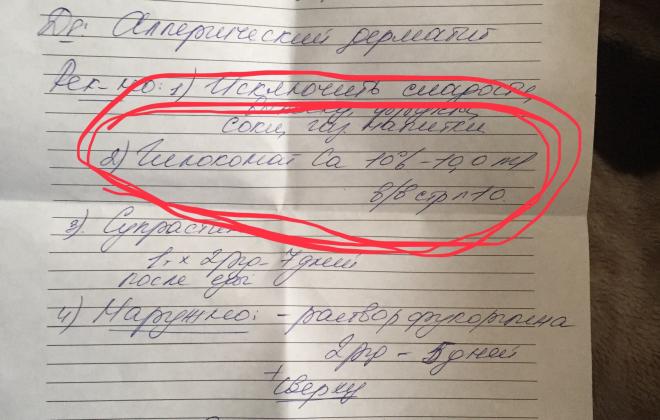 Ds: Аллергический дерматит
Рек-но: 1) Исключить сладости,
фрукты,
соки, газ напитки
2) Глюконат Ca 10% - 10,0 
в/в стр n 10
3) Супрастин
1т x 2 р/д 7 дней
после еды
4) Наружно: - раствор фукорцина
2 р/д - 5 дней
+ сверху